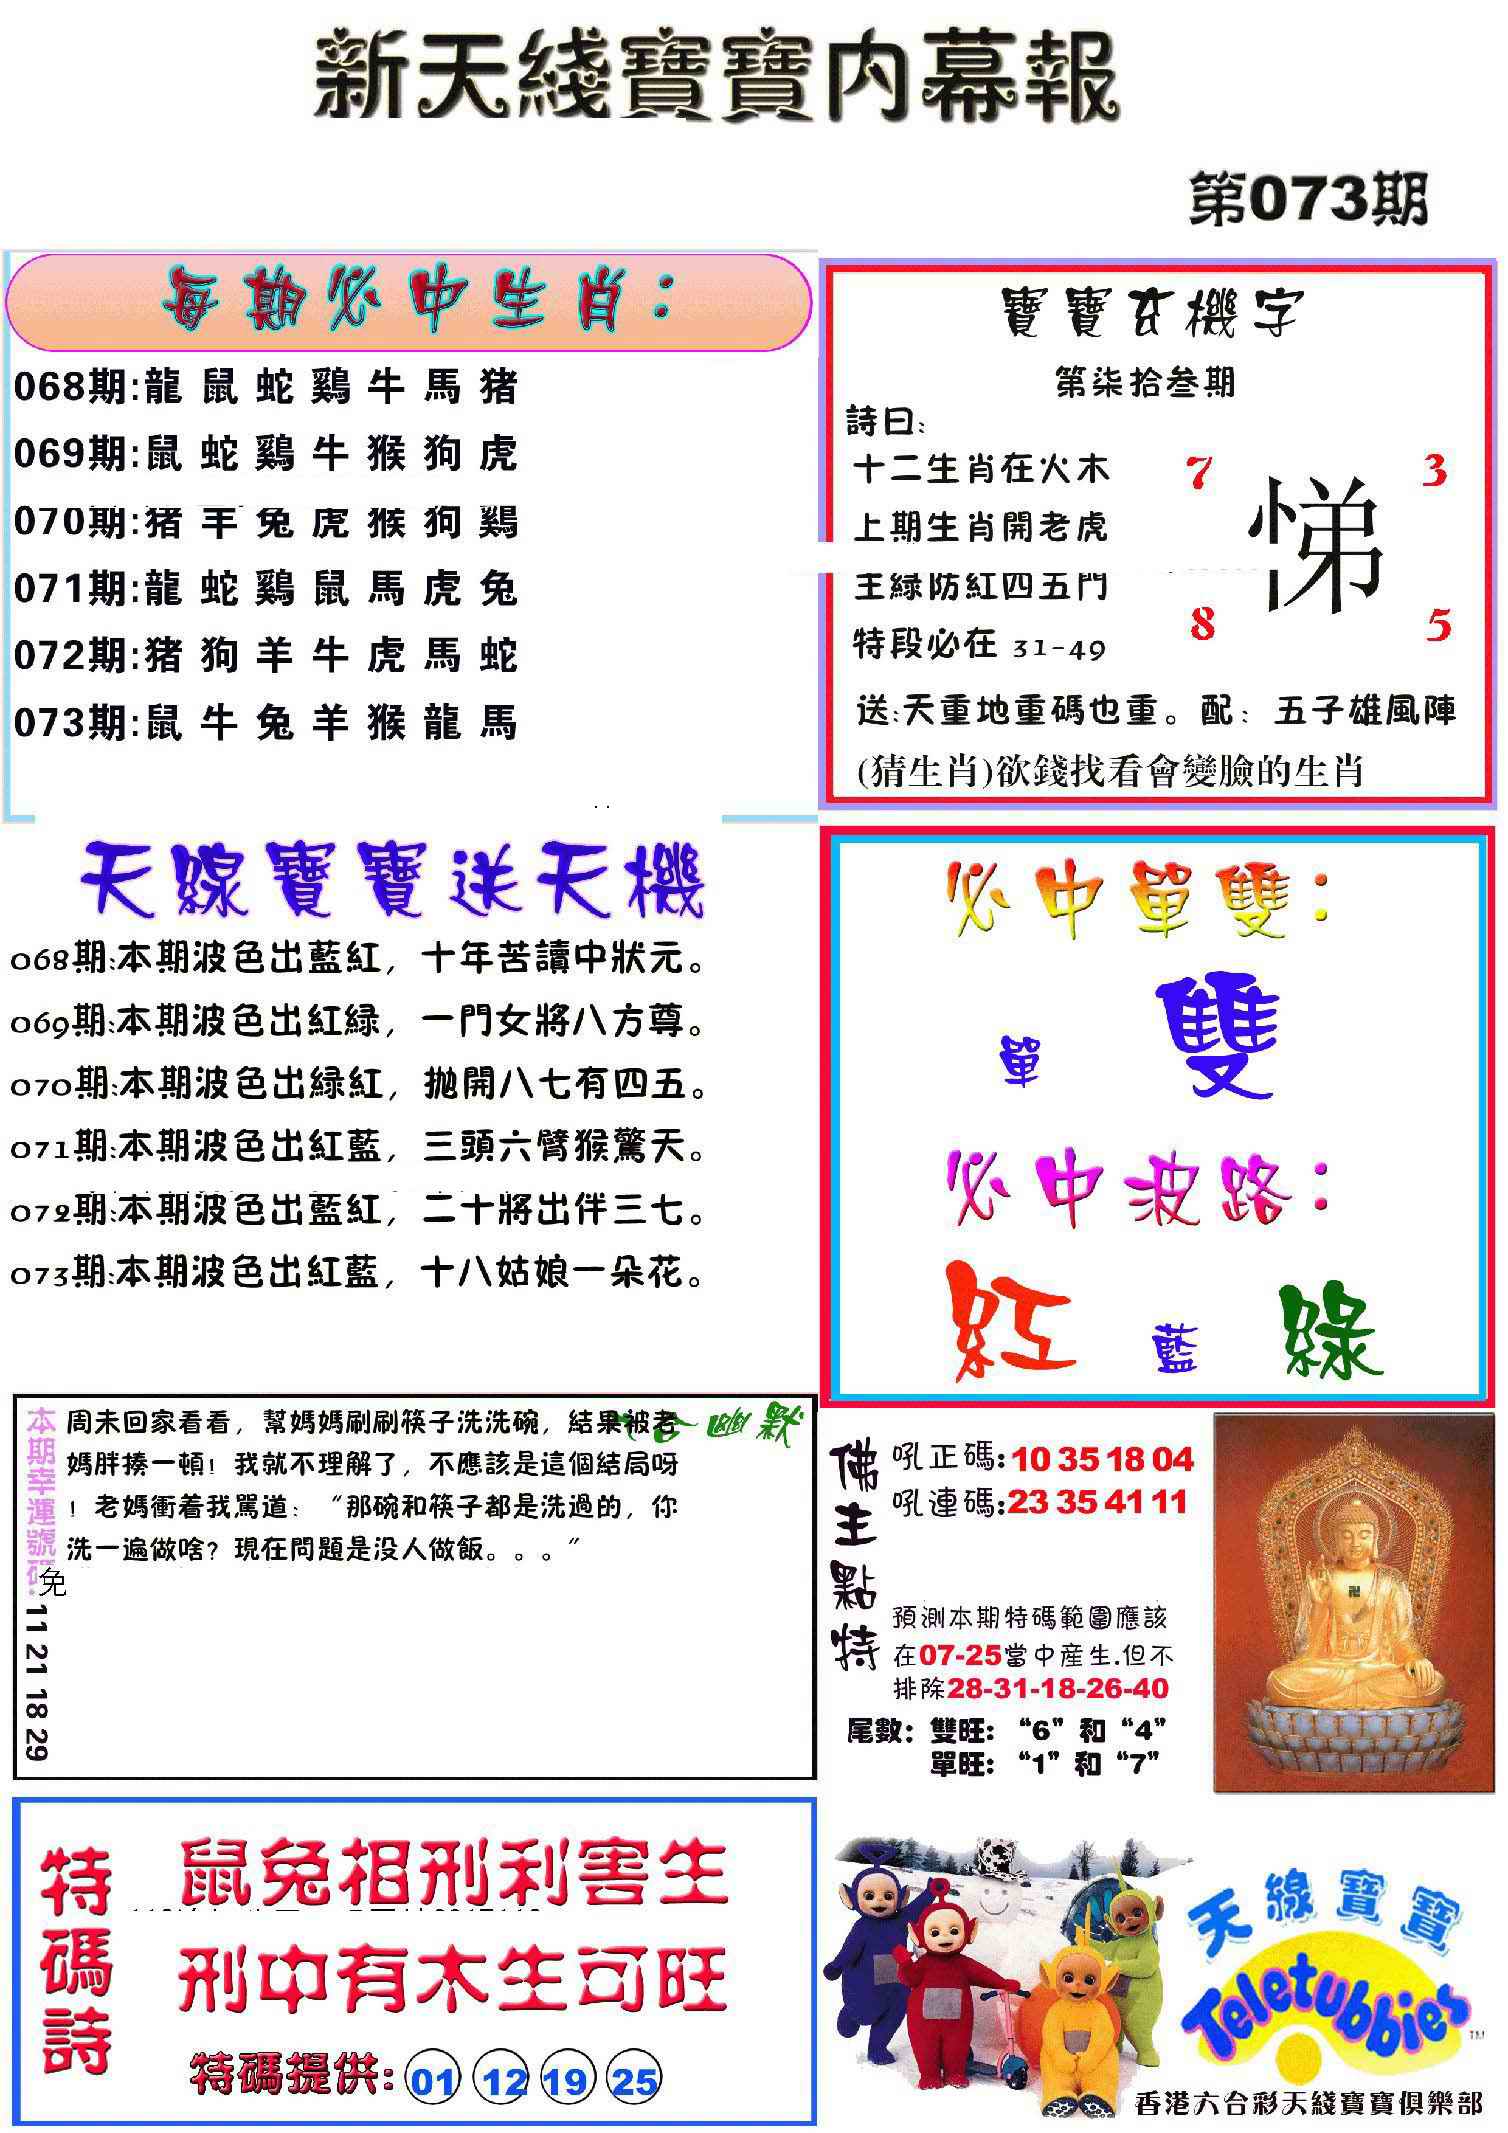 新天綫寶寶内幕報
第073期
每期必中生肖：
068期:龍 鼠 蛇 鷄 牛 馬 猪
069期:鼠 蛇 鷄 牛 猴 狗 虎
070期:猪 羊 兔 虎 猴 狗 鷄
071期:龍 蛇 鷄 鼠 馬 虎 兔
072期:猪 狗 羊 牛 虎 馬 蛇
073期:鼠 牛 兔 羊 猴 龍 馬
寶寶玄機字
第柒拾叁期
詩曰:
十二生肖在火木
上期生肖開老虎
主綠防紅四五門
特段必在 31-49
7 3
悌
8 5
送:天重地重碼也重。配：五子雄風陣
(猜生肖)欲錢找看會變臉的生肖
天線寶寶送天機
068期:本期波色出藍紅，十年苦讀中狀元。
069期:本期波色出紅緑，一門女將八方尊。
070期:本期波色出緑紅，抛開八七有四五。
071期:本期波色出紅藍，三頭六臂猴驚天。
072期:本期波色出藍紅，二十將出伴三七。
073期:本期波色出紅藍，十八姑娘一朵花。
必中單雙：
單 雙
必中波路：
紅 藍 綠
本期幸運號碼:
11 21 18 29
免
六合幽默
周末回家看看，幫媽媽刷刷筷子洗洗碗，結果被老
媽胖揍一頓！我就不理解了，不應該是這個結局呀
！老媽衝着我駡道：“那碗和筷子都是洗過的，你
洗一遍做啥？現在問題是没人做飯。。。”
佛主點特
吼正碼:10 35 18 04
吼連碼:23 35 41 11
預測本期特碼範圍應該
在07-25當中産生.但不
排除28-31-18-26-40
尾數：雙旺：“6”和“4”
單旺：“1”和“7”
特碼詩
鼠兔相刑利害生
刑中有木生可旺
特碼提供: 01 12 19 25
天線寶寶
Teletubbies
TM
香港六合彩天綫寶寶俱樂部